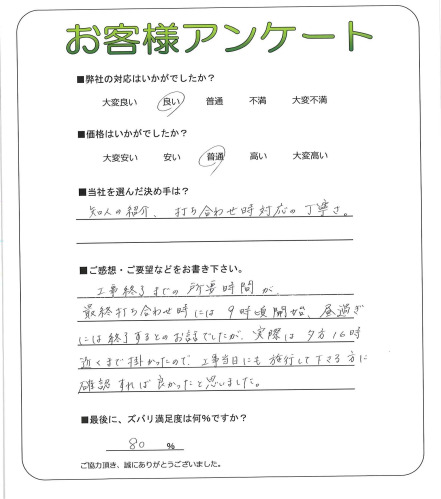 お客様アンケート
■弊社の対応はいかがでしたか？
大変良い 良い 普通 不満 大変不満
■価格はいかがでしたか？
大変安い 安い 普通 高い 大変高い
■当社を選んだ決め手は？
知人の紹介、打ち合わせ時対応の丁寧さ。
■ご感想・ご要望などをお書き下さい。
工事終了までの所要時間が、
最終打ち合わせ時には9時頃開始、昼過ぎ
には終了するとのお話でしたが、実際は夕方16時
近くまで掛かったので、工事当日にも施行して下さる方に
確認すれば良かったと思いました。
■最後に、ズバリ満足度は何%ですか？
80 %
ご協力頂き、誠にありがとうございました。